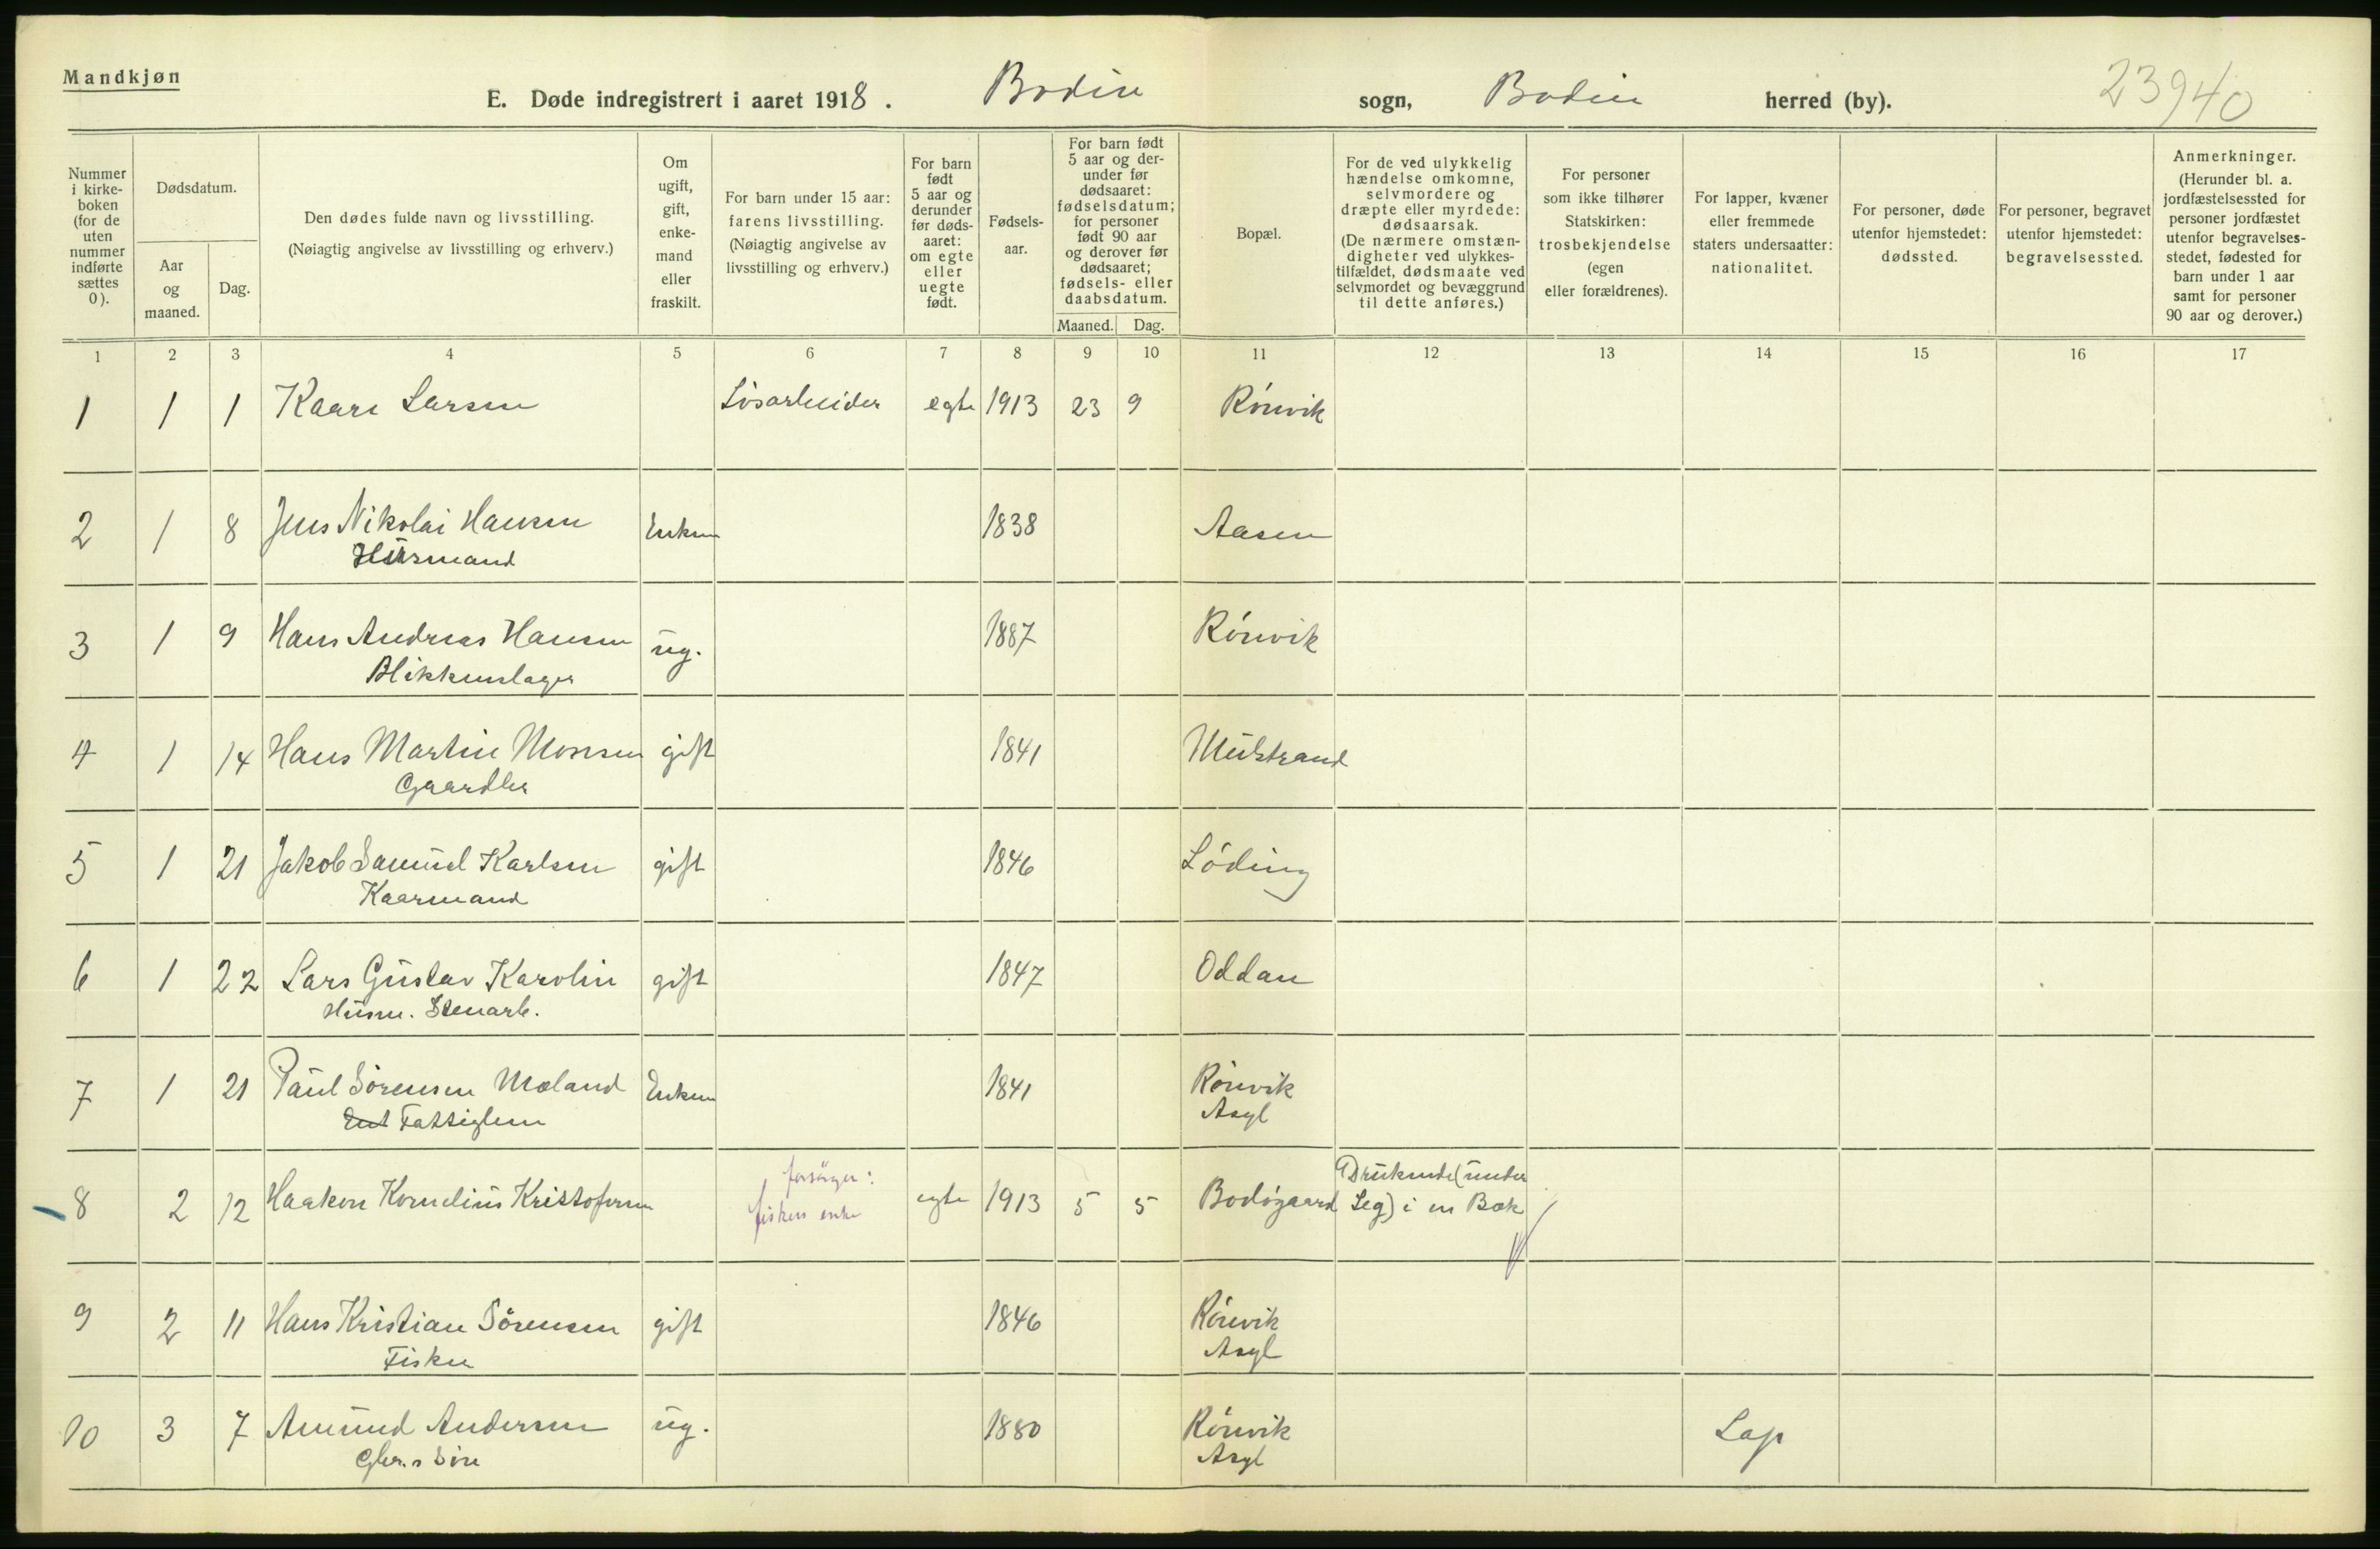 Mandkjøn
E. Døde indregistrert i aaret 1918. Bodin sogn, Bodin herred (by). 23940
Nummer i kirke-boken (for de uten nummer indførte sættes 0).
Dødsdatum.
Aar og maaned.
Dag.
Den dødes fulde navn og livsstilling.
(Nøiagtig angivelse av livsstilling og erhverv.)
Om ugift, gift, enke-mand eller fraskilt.
For barn under 15 aar: farens livsstilling. (Nøiagtig angivelse av livsstilling og erhverv.)
For barn født 5 aar og derunder før døds-aaret: om egte eller uegte født.
Fødsels-aar.
For barn født 5 aar og der-under før dødsaaret: fødselsdatum; for personer født 90 aar og derover før dødsaaret; fødsels- eller daabsdatum.
Maaned. Dag.
Bopæl.
For de ved ulykkelig hændelse omkomne, selvmordere og dræpte eller myrdede: dødsaarsak. (De nærmere omstæn-digheter ved ulykkes-tilfældet, dødsmaate ved selvmordet og bevæggrund til dette anføres.)
For personer som ikke tilhører Statskirken: trosbekjendelse (egen eller forældrenes).
For lapper, kvæner eller fremmede staters undersaatter: nationalitet.
For personer, døde utenfor hjemstedet: dødssted.
For personer, begravet utenfor hjemstedet: begravelsessted.
Anmerkninger. (Herunder bl. a. jordfæstelsessted for personer jordfæstet utenfor begravelses-stedet, fødested for barn under 1 aar samt for personer 90 aar og derover.)
1 2 3 4 5 6 7 8 9 10 11 12 13 14 15 16 17
1 1 1 Kaare Larsen Løsarbeider egte 1913 23 9 Rønvik
2 1 8 Jens Nikolai Hansen Enkem 1838 Aasen
Husmand
3 1 9 Hans Andreas Hansen ug. 1887 Rønvik
Blikkenslager
4 1 14 Hans Martin Monsen gift 1841 Mulstrand
Gaardbr
5 1 21 Jakob Samuel Karlsen gift 1846 Løding
Kaarmand
6 1 22 Lars Gustav Karolin gift 1847 Oddan
Husm. Stenarb.
7 1 21 Paul Sørensen Mæland Enkem 1841 Rønvik
Fattiglem Asyl
8 2 12 Haakon Kornelius Kristofersen forsørger: egte 1913 5 5 Bodøgaard Drukende (under
fiskers enke Leg) i en Bæk
9 2 11 Hans Kristian Sørensen gift 1846 Rønvik
Fisker Asyl
10 3 7 Amund Andersen ug. 1880 Rønvik Lap
Gbr.s Søn Asyl